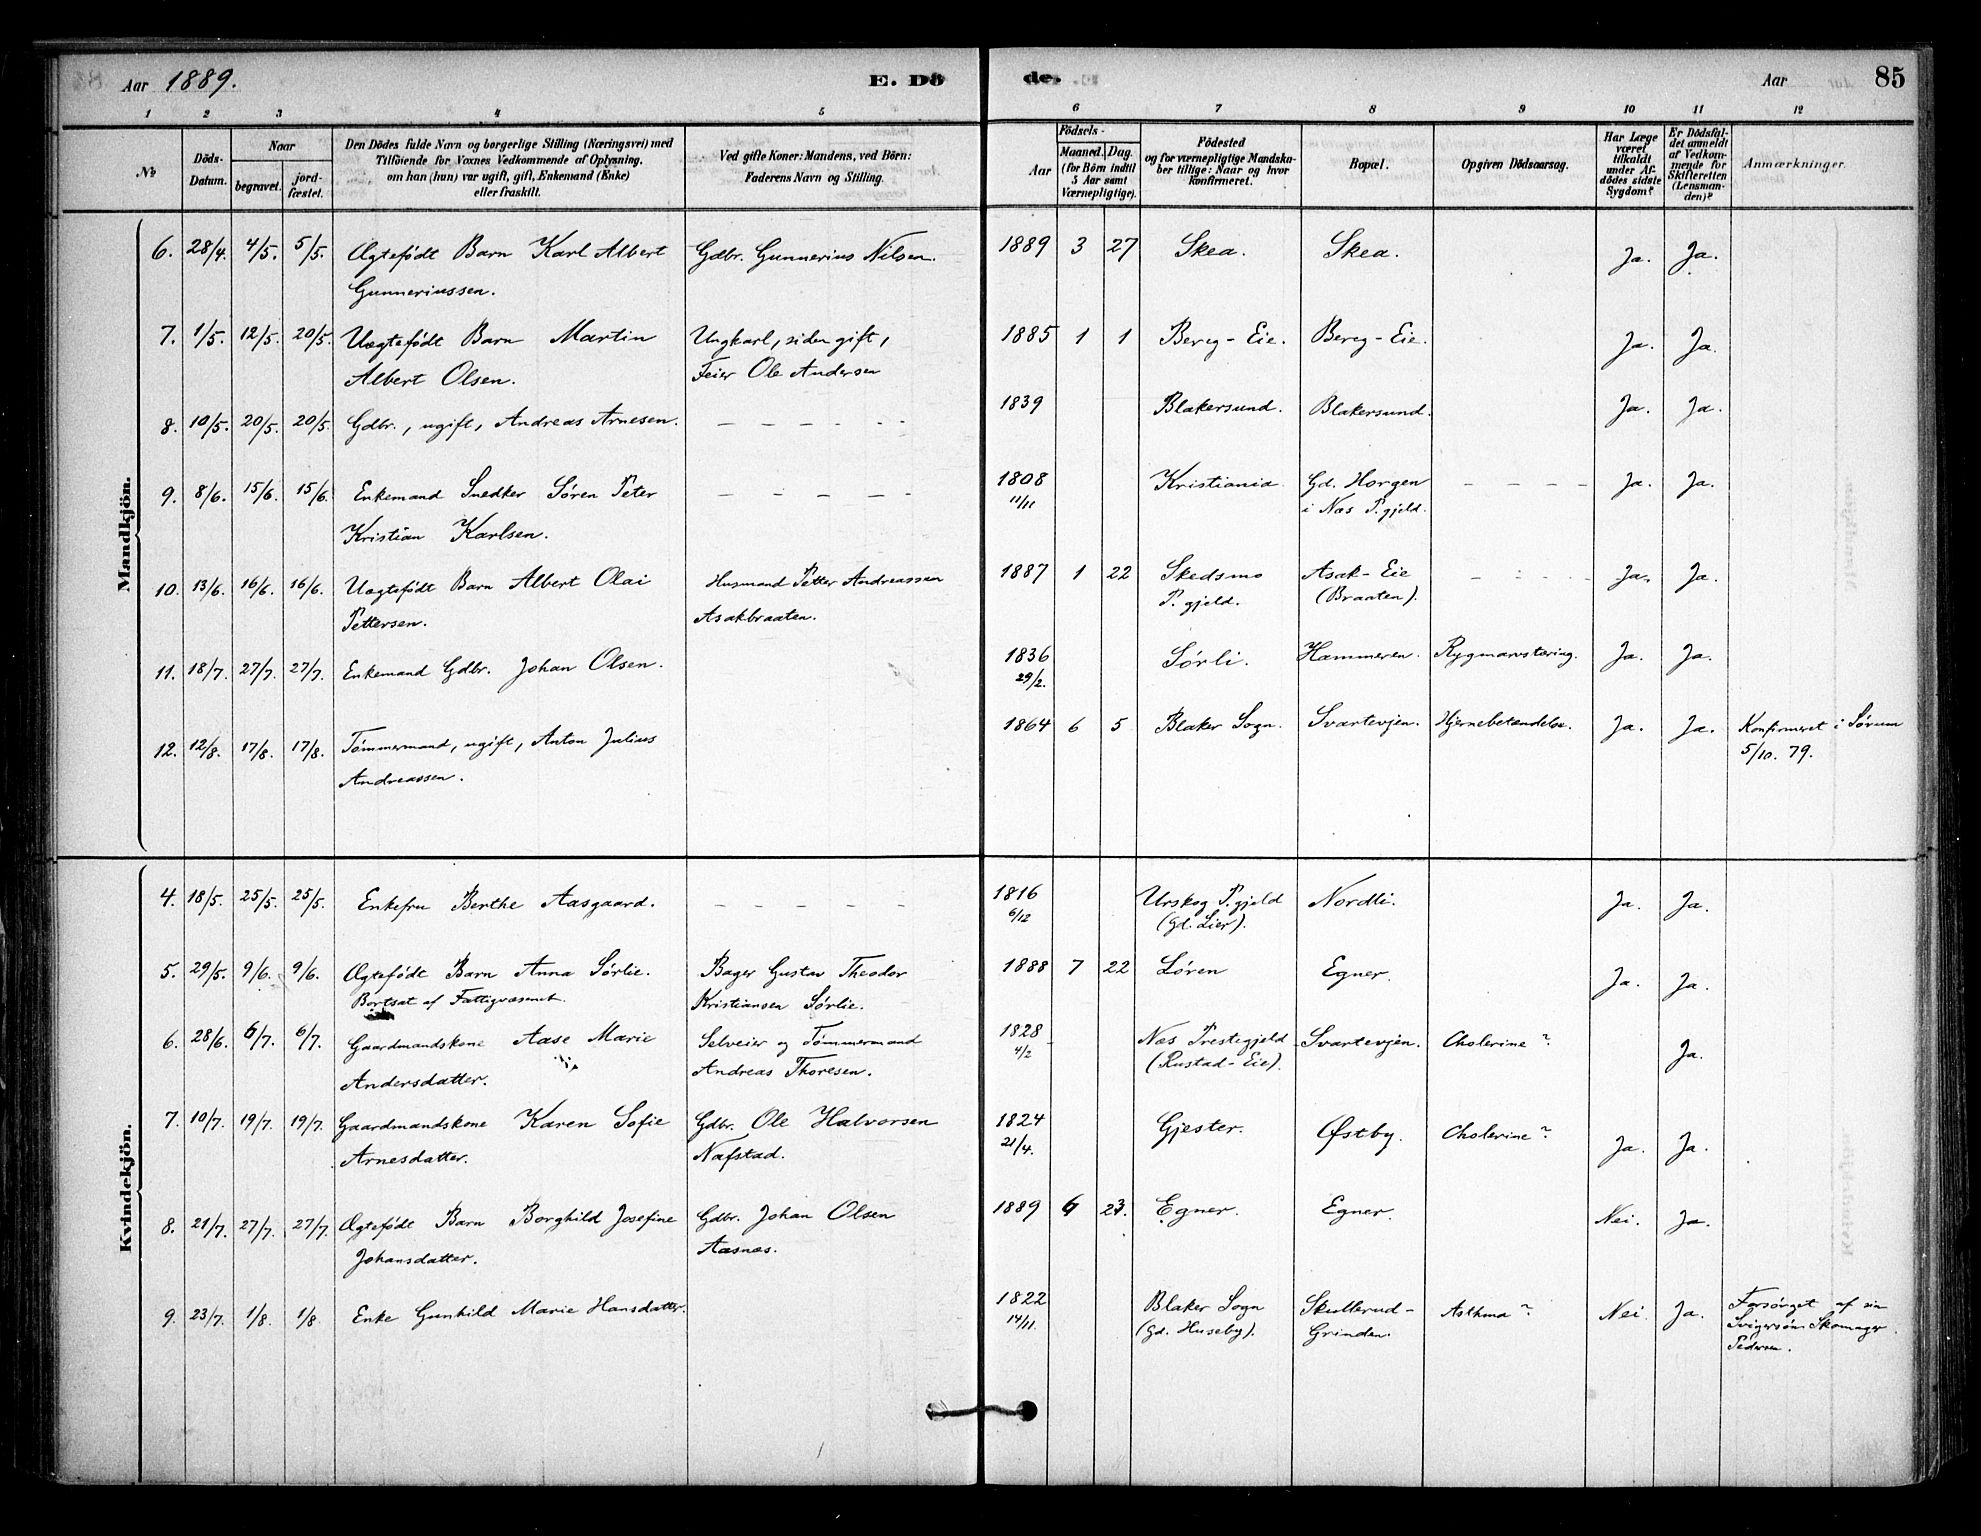 Aar 1889. E. Dö de. Aar 85
1 2 3 4 5 6 7 8 9 10 11 12
No
Döds-Datum.
Naar
begravet. jord-fæstet.
Den Dödes fulde Navn og borgerlige Stilling (Næringsvei) med
Tilföiende for Voxnes Vedkommende af Oplysning,
om han (hun) var ugift, gift, Enkemand (Enke)
eller fraskilt.
Ved gifte Koner: Mandens, ved Börn:
Faderens Navn og Stilling.
Födsels-
Aar Maaned. Dag.
(for Börn indtil
5 Aar samt
Værnepligtige).
Födested
og for værnepligtige Mandska-
ber tillige: Naar og hvor
konfirmeret.
Bopæl.
Opgiven Dödsaarsag.
Har Læge
været
tilkaldt
under Af-
dödes sidste
Sygdom?
Er Dödsfal-
det anmeldt
af Vedkom-
mende for
Skifteretten
(Lensman-
den)?
Anmærkninger.
Mandkjön.
6. 28/4. 4/5. 5/5. Ægtefödt Barn Karl Albert Gdbr. Gunnerius Nilsen. 1889 3 27 Skea. Skea. Ja. Ja.
Gunneriussen.
7. 1/5. 12/5. 20/5. Uægtefödt Barn Martin Ungkarl, siden gift, 1885 1 1 Berg-Eie. Berg-Eie. Ja. Ja.
Albert Olsen. Feier Ole Andersen
8. 10/5. 20/5. 20/5. Gdbr., ugift, Andreas Arnesen. — — — — 1839 Blakersund. Blakersund. Ja. Ja.
9. 8/6. 15/6. 15/6. Enkemand Snedker Sören Peter — — — — 1808 Kristiania. Gd. Horgen — — — — Ja. Ja.
Kristian Karlsen. 11/11 i Næs P.gjeld.
10. 13/6. 16/6. 16/6. Uægtefödt Barn Albert Olai Husmand Petter Andreassen 1887 1 22 Skedsmo Asak-Eie — — — — Ja. Ja.
Pettersen. Asakbraaten. P.gjeld. (Braaten).
11. 18/7. 27/7. 27/7. Enkemand Gdbr. Johan Olsen. 1836 Sørli. Hammeren. Rygmarvstæring. Ja. Ja.
29/2.
12. 12/8. 17/8. 17/8. Tömmermand, ugift, Anton Julius 1864 6 5 Blaker Sogn. Svartevjen. Hjernebetændelse. Ja. Ja. Konfirmeret i Sörum
Andreassen. 5/10. 79.
Kvindekjön.
4. 18/5. 25/5. 25/5. Enkefru Berthe Aasgaard. — — — — 1816 Urskog P.gjeld Nordli. Ja. Ja.
6/12 (Gd. Lier).
5. 29/5. 9/6. 9/6. Ægtefödt Barn Anna Sörlie. Bager Gustav Theodor 1888 7 22 Løren Egner. Ja. Ja.
Bortsat af Fattigvæsenet. Kristiansen Sörlie.
6. 28/6. 6/7. 6/7. Gaardmandskone Aase Marie Selveier og Tömmermand 1828 Næs Prestegjeld Svartevjen. Cholerine? Ja.
Andersdatter. Andreas Thoresen. 4/2 (Rustad-Eie).
7. 10/7. 19/7. 19/7. Gaardmandskone Karen Sofie Gdbr. Ole Halvorsen 1824 Gjester. Østby. Cholerine? Ja. Ja.
Arnesdatter. Nafstad. 21/4.
8. 21/7. 27/7. 27/7. Ægtefödt Barn Borghild Josefine Gdbr. Johan Olsen 1889 6 23. Egner. Egner. Nei. Ja.
Johansdatter. Aasnæs.
9. 23/7. 1/8. 1/8. Enke Gunhild Marie Hansdatter. 1822 Blaker Sogn Skullerud- Asthma? Nei. Ja. Forsörget af sin
14/11. (Gd. Huseby). Grinden. Svigersön Skomager
Pedersen.